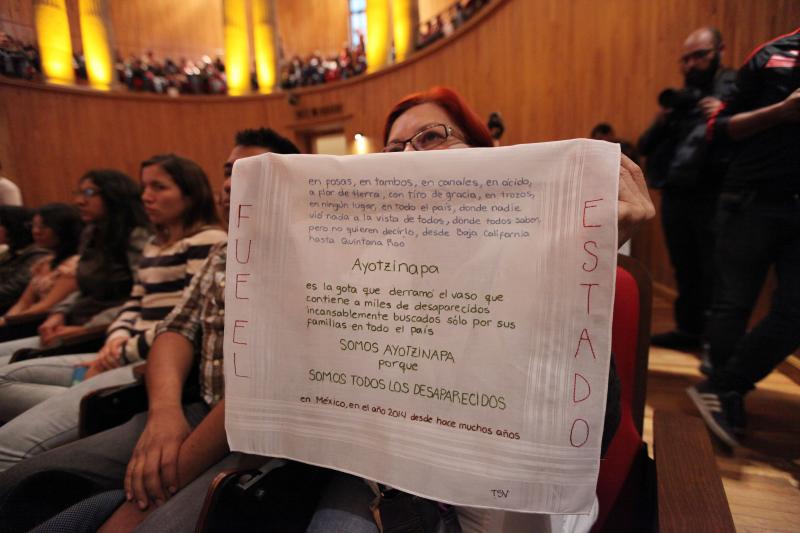 en posas, en tambos, en canales, en ácido,
a flor de tierra, con tiro de gracia, en trozos,
en ningún lugar, en todo el país, donde nadie
vió nada a la vista de todos, donde todos saben
pero no quieren decirlo, desde Baja California
hasta Quintana Roo
Ayotzinapa
es la gota que derramó el vaso que
contiene a miles de desaparecidos
incansablemente buscados sólo por sus
familias en todo el país
SOMOS AYOTZINAPA
porque
SOMOS TODOS LOS DESAPARECIDOS
en México, en el año 2014 desde hace muchos años
TSV
FUE EL
ESTADO